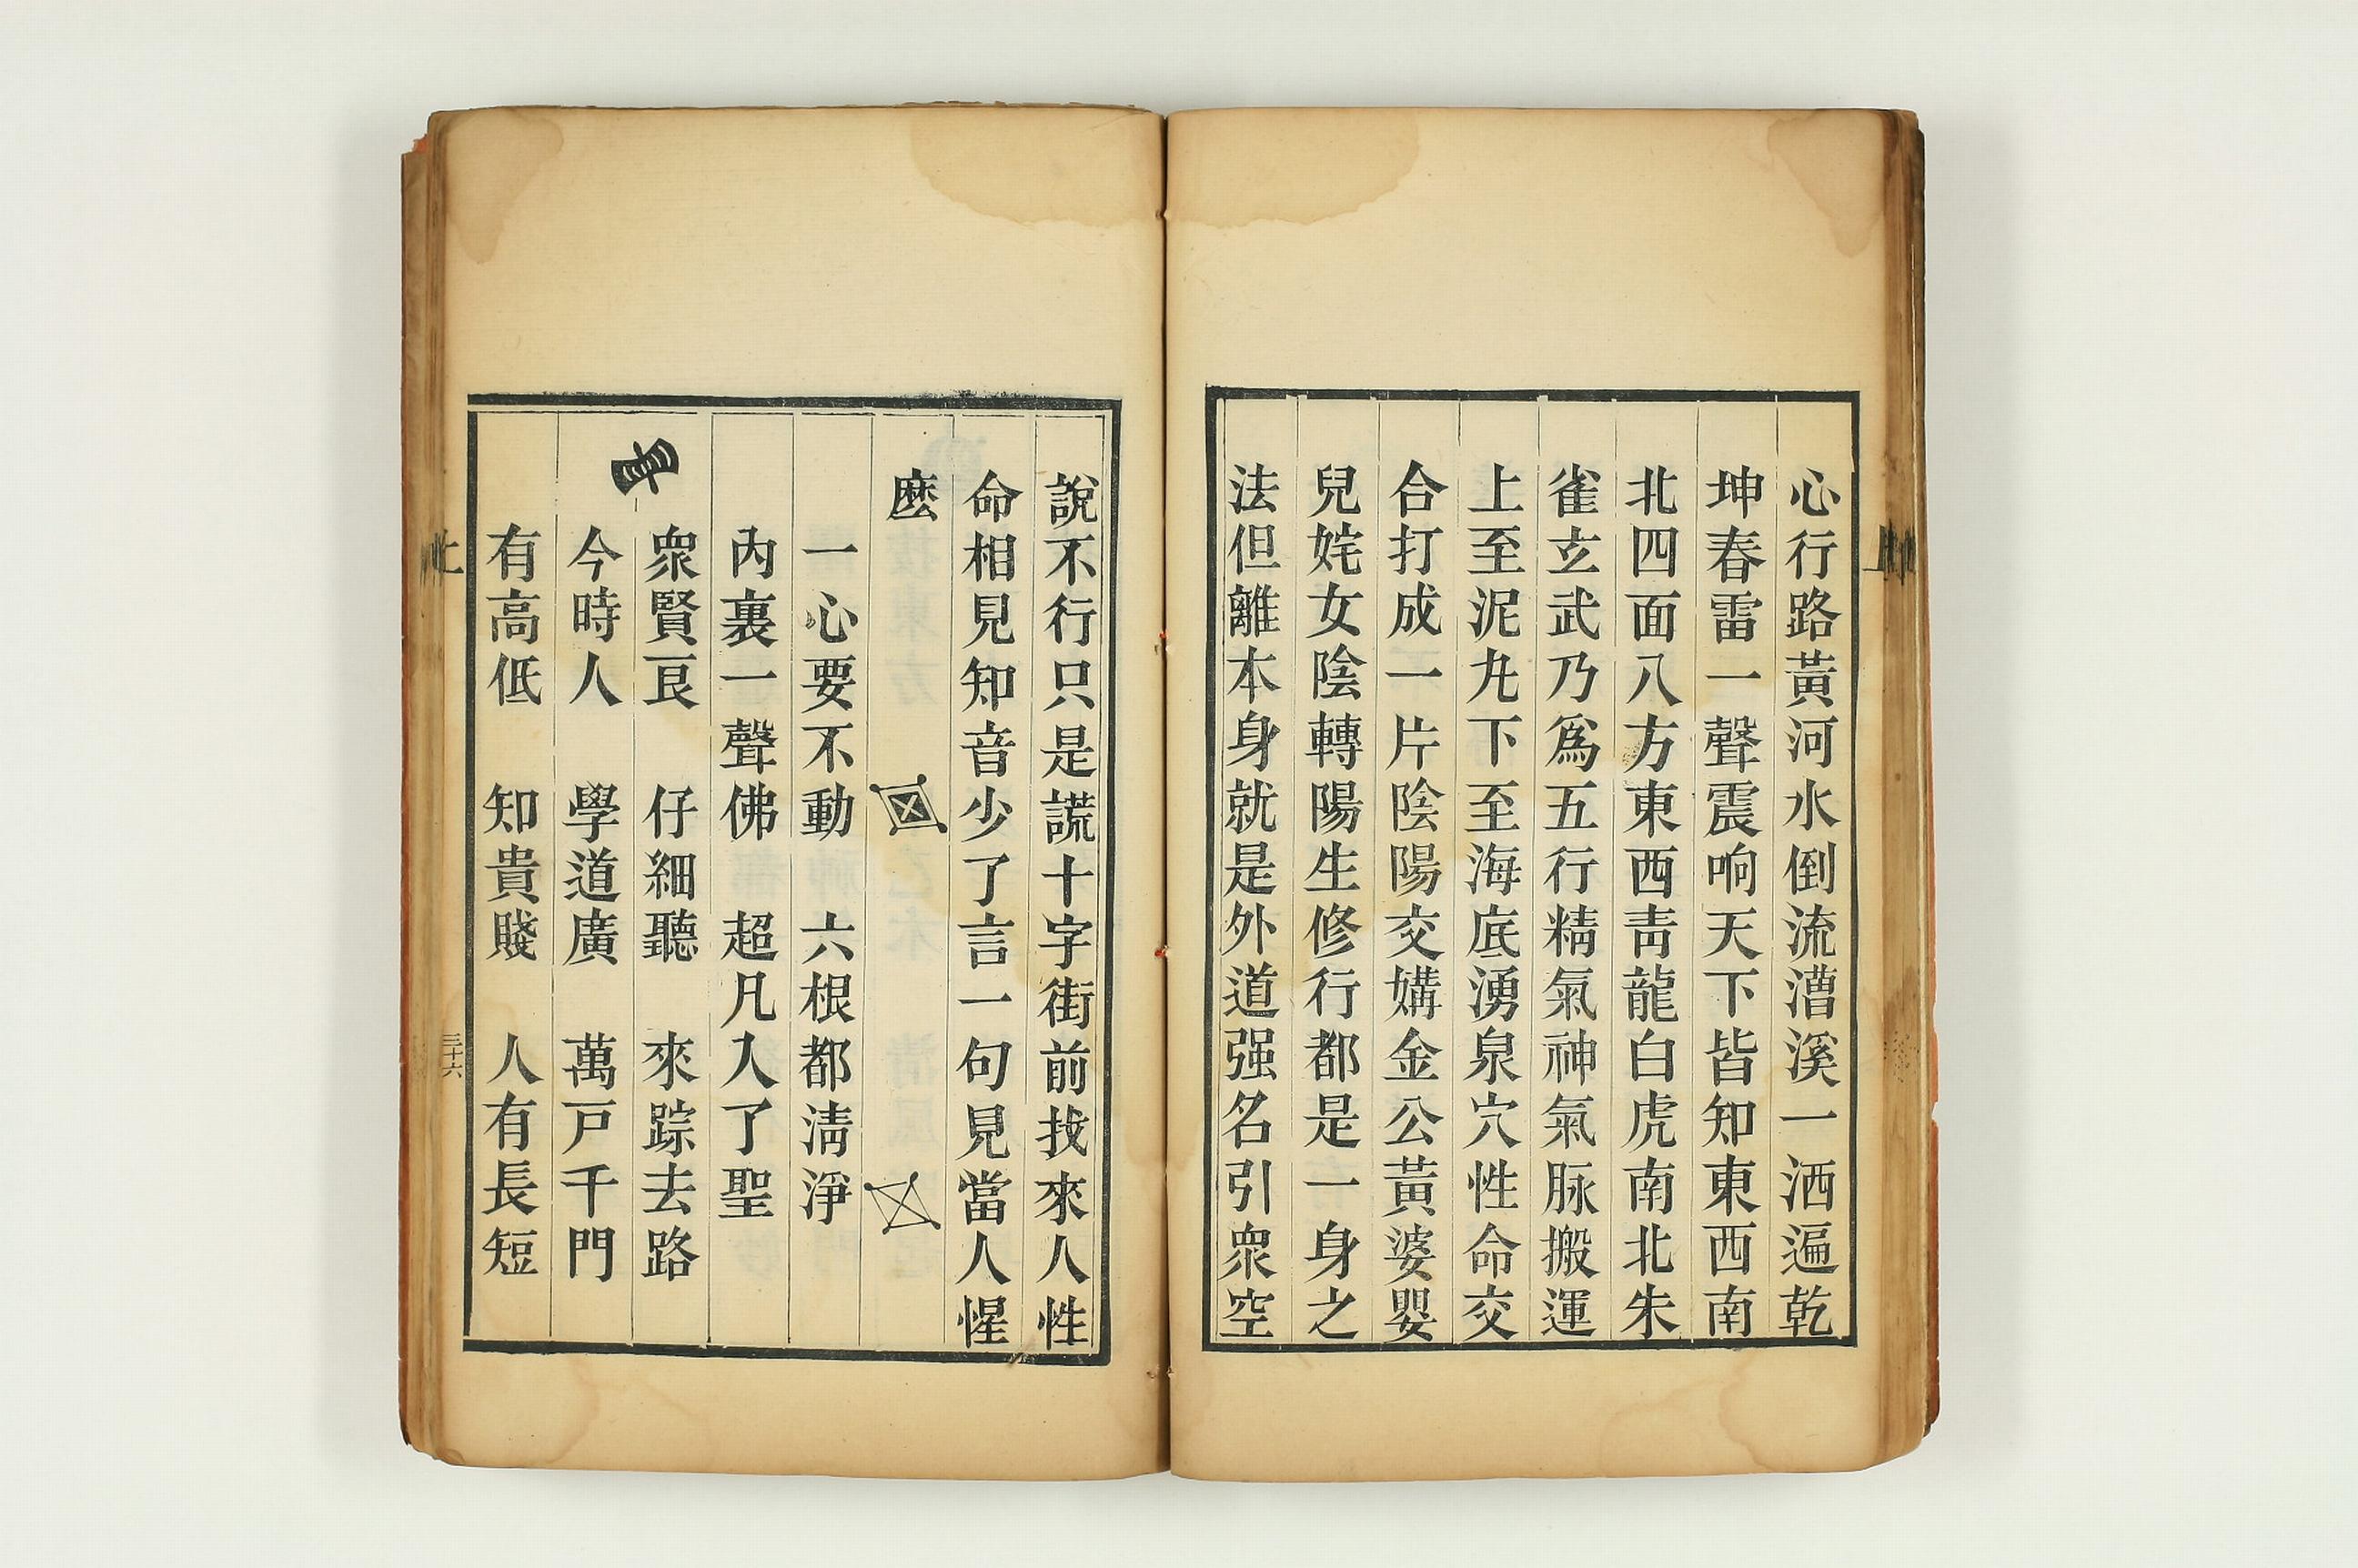 心行路黃河水倒流漕溪一洒遍乾
坤春雷一聲震响天下皆知東西南
北四面八方東西靑龍白虎南北朱
雀玄武乃爲五行精氣神氣脉搬運
上至泥九下至海底湧泉穴性命交
合打成一片陰陽交媾金公黃婆嬰
兒姹女陰轉陽生修行都是一身之
法但離本身就是外道强名引衆空
說不行只是謊十字街前找來人性
命相見知音少了言一句見當人惺
麽
一心要不動 六根都淸淨
內裏一聲佛 超凡入了聖
衆賢良 仔細聽 來踪去路
今時人 學道廣 萬戸千門
有高低 知貴賤 人有長短
三十六